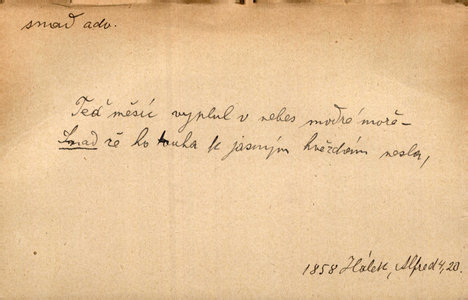 snad adv.
Teď měsíc vyplul v nebes modré moře –
Snad že ho touha k jasným hvězdám nesla,
1858 Hálek, Alfred 4, 20.